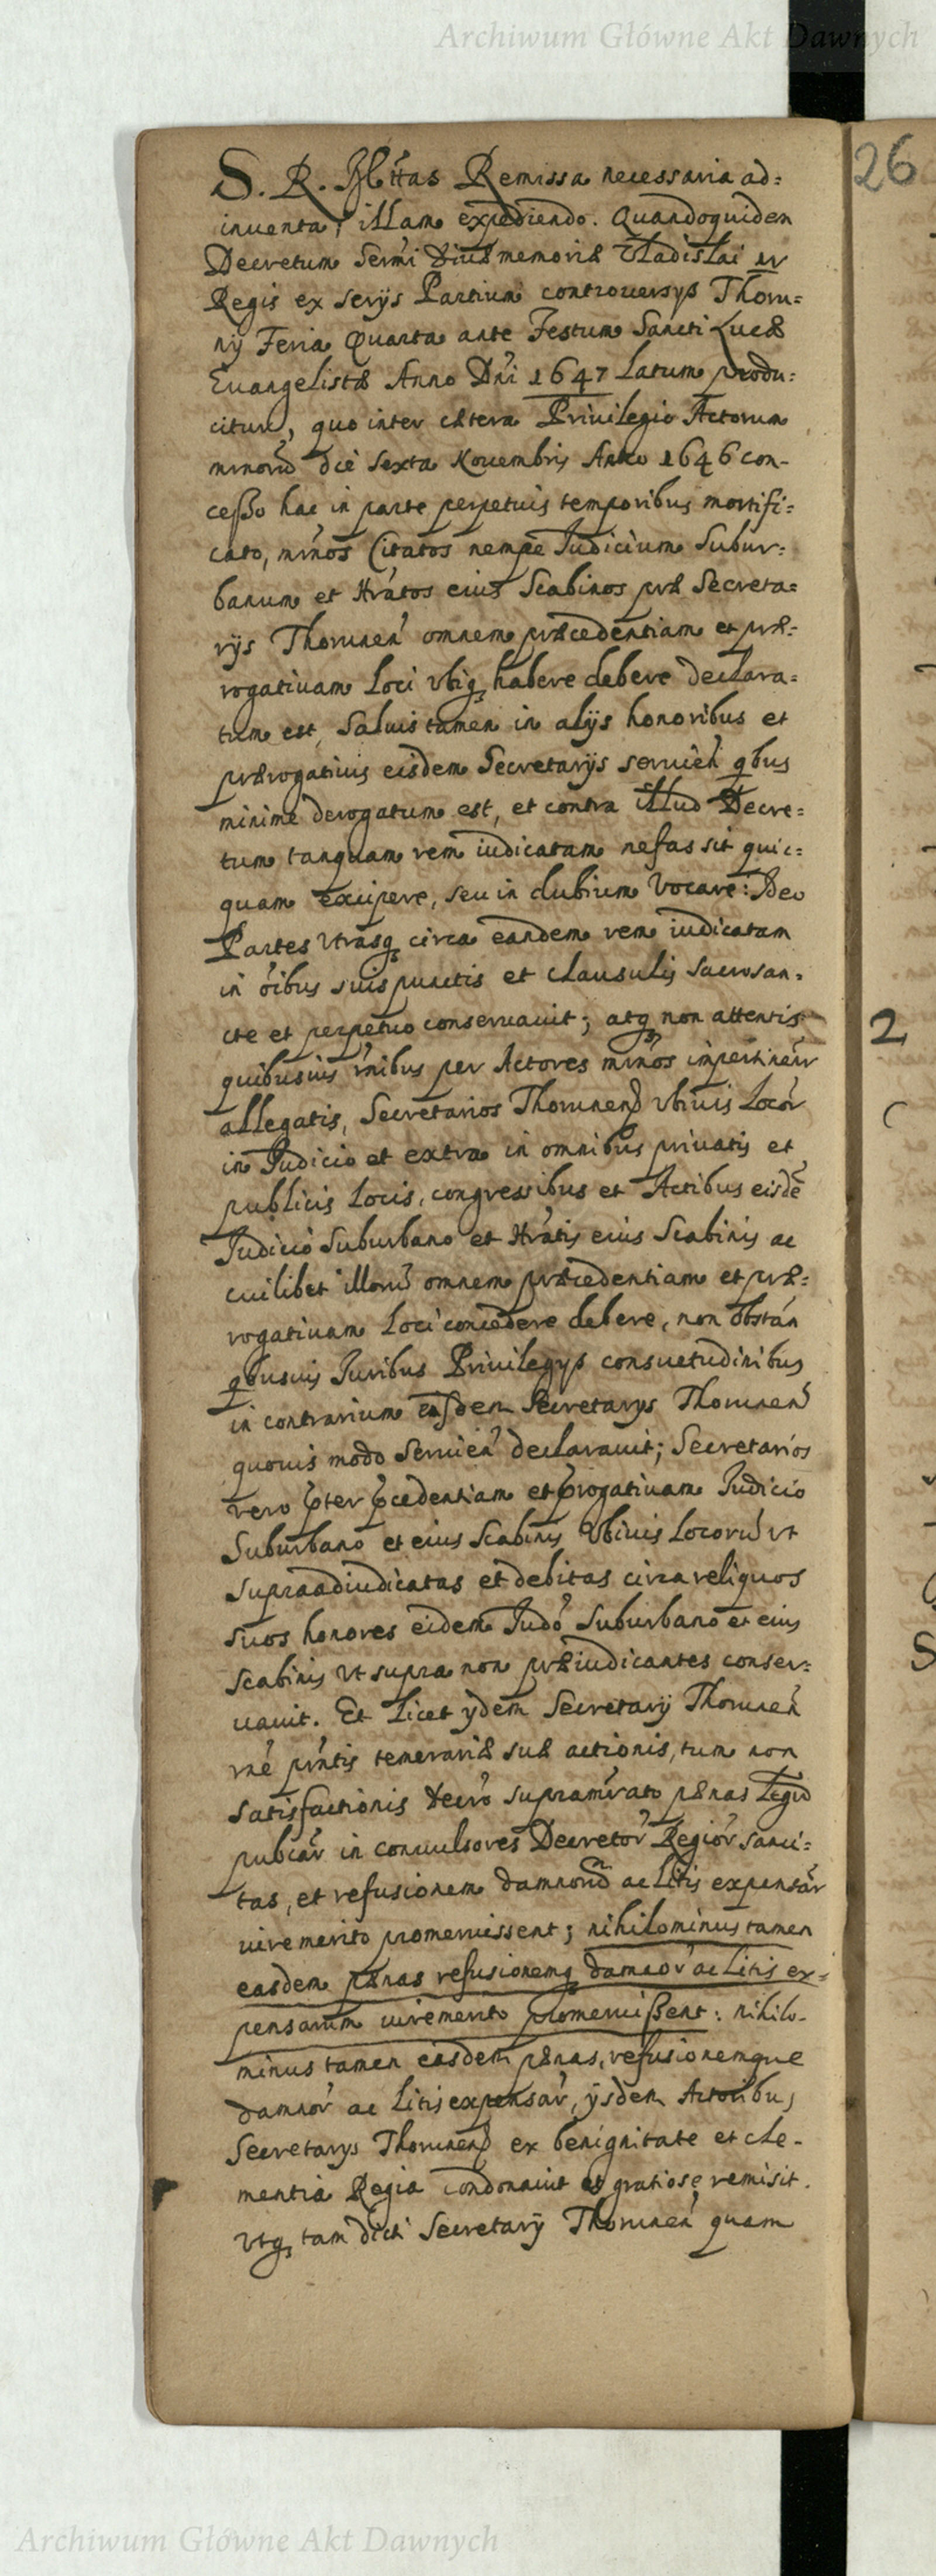 Archiwum Główne Akt Dawnych
26
S. R. Mttas Remissa necessaria ad=
inuenta, illam expediendo. Quandoquidem
Decretum Sermi Diuæ memoriæ Vladislai IV
Regis ex serijs Partium controuersijs Thoru=
nij Feria Quarta ante Festum Sancti Lucæ
Euangelistæ Anno Dni 1647 latum produ=
citur, quo inter cætera Priuilegio Actorum
mnorū die sexta Nouembris Anno 1646 con-
cesso hac in parte perpetuis temporibus mortifi=
cato, mnos Citatos nempe Judicium Subur=
banum et Hratos eius Scabinos præ Secreta=
rijs Thorunen omnem præcedentiam et præ=
rogatiuam Loci vbiq habere debere declara=
tum est, Saluis tamen in alijs honoribus et
prærogatiuis eisdem Secretarijs seruien qbus
minime derogatum est, et contra illud Decre=
tum tanquam rem iudicatam nefas sit quic=
quam excipere, seu in dubium vocare: Ideo
Partes vtrasq circa eandem rem iudicatam
in oibus suis punctis et clausulis sacrosan=
cte et perpetuo conseruauit; atq non attentis
quibusuis rnibus per Actores mnos impertinenr
allegatis, Secretarios Thorunen vbiuis Locor
in Judicio et extra in omnibus priuatis et
publicis Locis, congressibus et Actibus eisdē
Judicio Suburbano et Hratis eius Scabinis ac
cuilibet illorū omnem præcedentiam et præ=
rogatiuam Loci concedere debere, non obstan
qbusuis Juribus Priuilegijs consuetudinibus
in contrarium eisdem Secretarijs Thorunen
quouis modo Seruien declarauit; Secretarios
vero pter pcedentiam et progatiuam Judicio
Suburbano et eius Scabinis Vbiuis Locorū vt
supra adiudicatas et debitas circa reliquos
suos honores eidem Judo Suburbano et eius
Scabinis vt supra non præiudicantes conser=
uauit. Et licet ijdem Secretarij Thorunen
rne pntis temerariæ suæ actionis, tum non
satisfactionis Decro supramrato pænas Legū
publcar in conuulsores Decretor Regior sanci=
tas, et refusionem damnorū ac Litis expensar
iure merito promeruissent; nihilominus tamen
easdem pænas refusionemq damnor ac Litis ex=
pensarum iure merito promeruissent: nihilo-
minus tamen easdem pænas, refusionemque
damnor ac Litis expensar, ijsdem Actoribus
Secretarijs Thorunen ex benignitate et cle-
mentia Regia condonauit et gratiose remisit.
Vtq tam dicti Secretarij Thorunen quam
2
Archiwum Główne Akt Dawnych